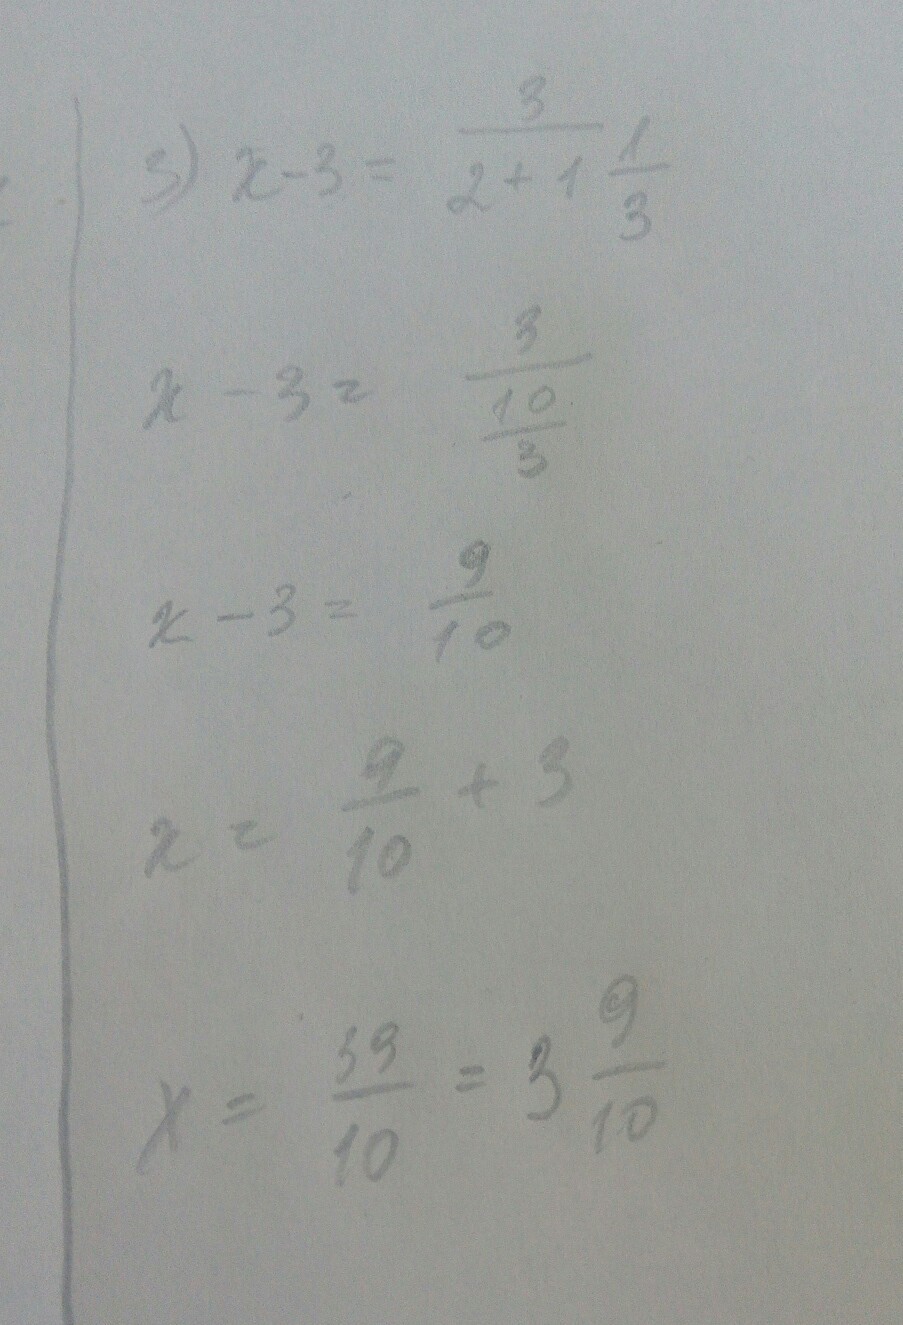 3) x - 3 = 3/(2 + 1 1/3)
x - 3 = 3/(10/3)
x - 3 = 9/10
x = 9/10 + 3
x = 39/10 = 3 9/10